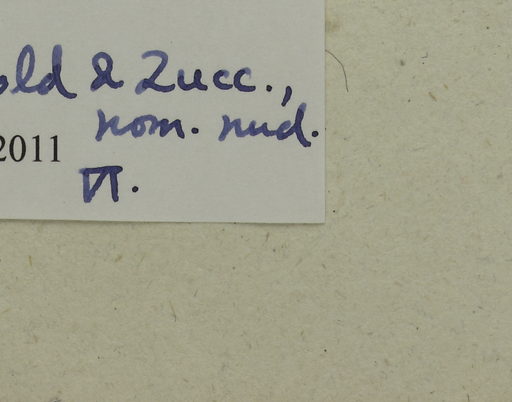 old & Zucc.,
nom. nud.
2011
VI.